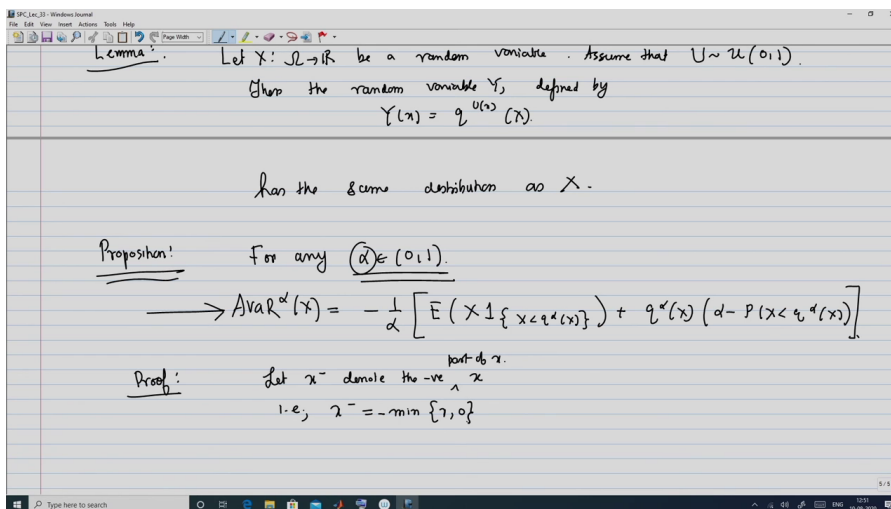 SPC_Lec_33 - Windows Journal
File Edit View Insert Actions Tools Help
Page Width
Lemma: Let X: Ω→ℝ be a random variable. Assume that U~U(0,1).
Then the random variable Y, defined by
Y(x) = q^{U(x)}(X).
has the same distribution as X.
Proposition: For any α∈(0,1).
→ AVaR^α(X) = -1/α [E(X 1_{X<q^α(X)}) + q^α(X)(α - P(X<q^α(X))]
Proof: Let x⁻ denote the -ve part of x. x
i.e; x⁻ = -min{x,0}
5/5
Type here to search
ENG
12:51
10-09-2020